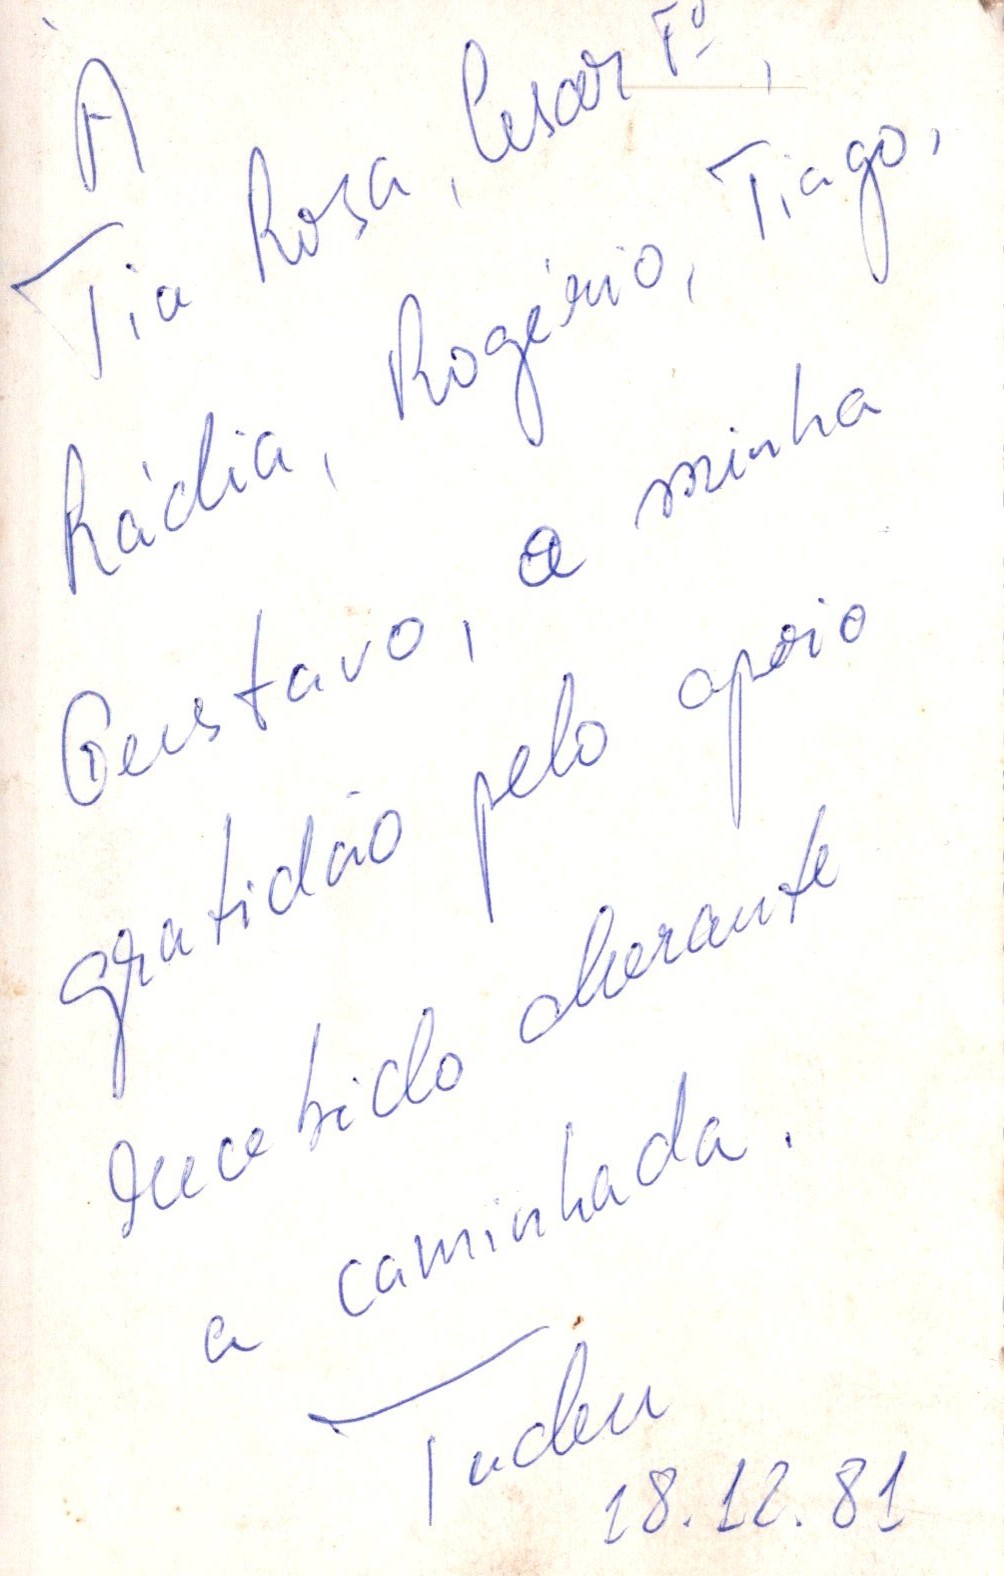 À
Tia Rosa, Cesar Fº,
Rádia, Rogério, Tiago,
Gustavo, a minha
gratidão pelo apoio
recebido durante
a caminhada.
Tadeu
18.12.81